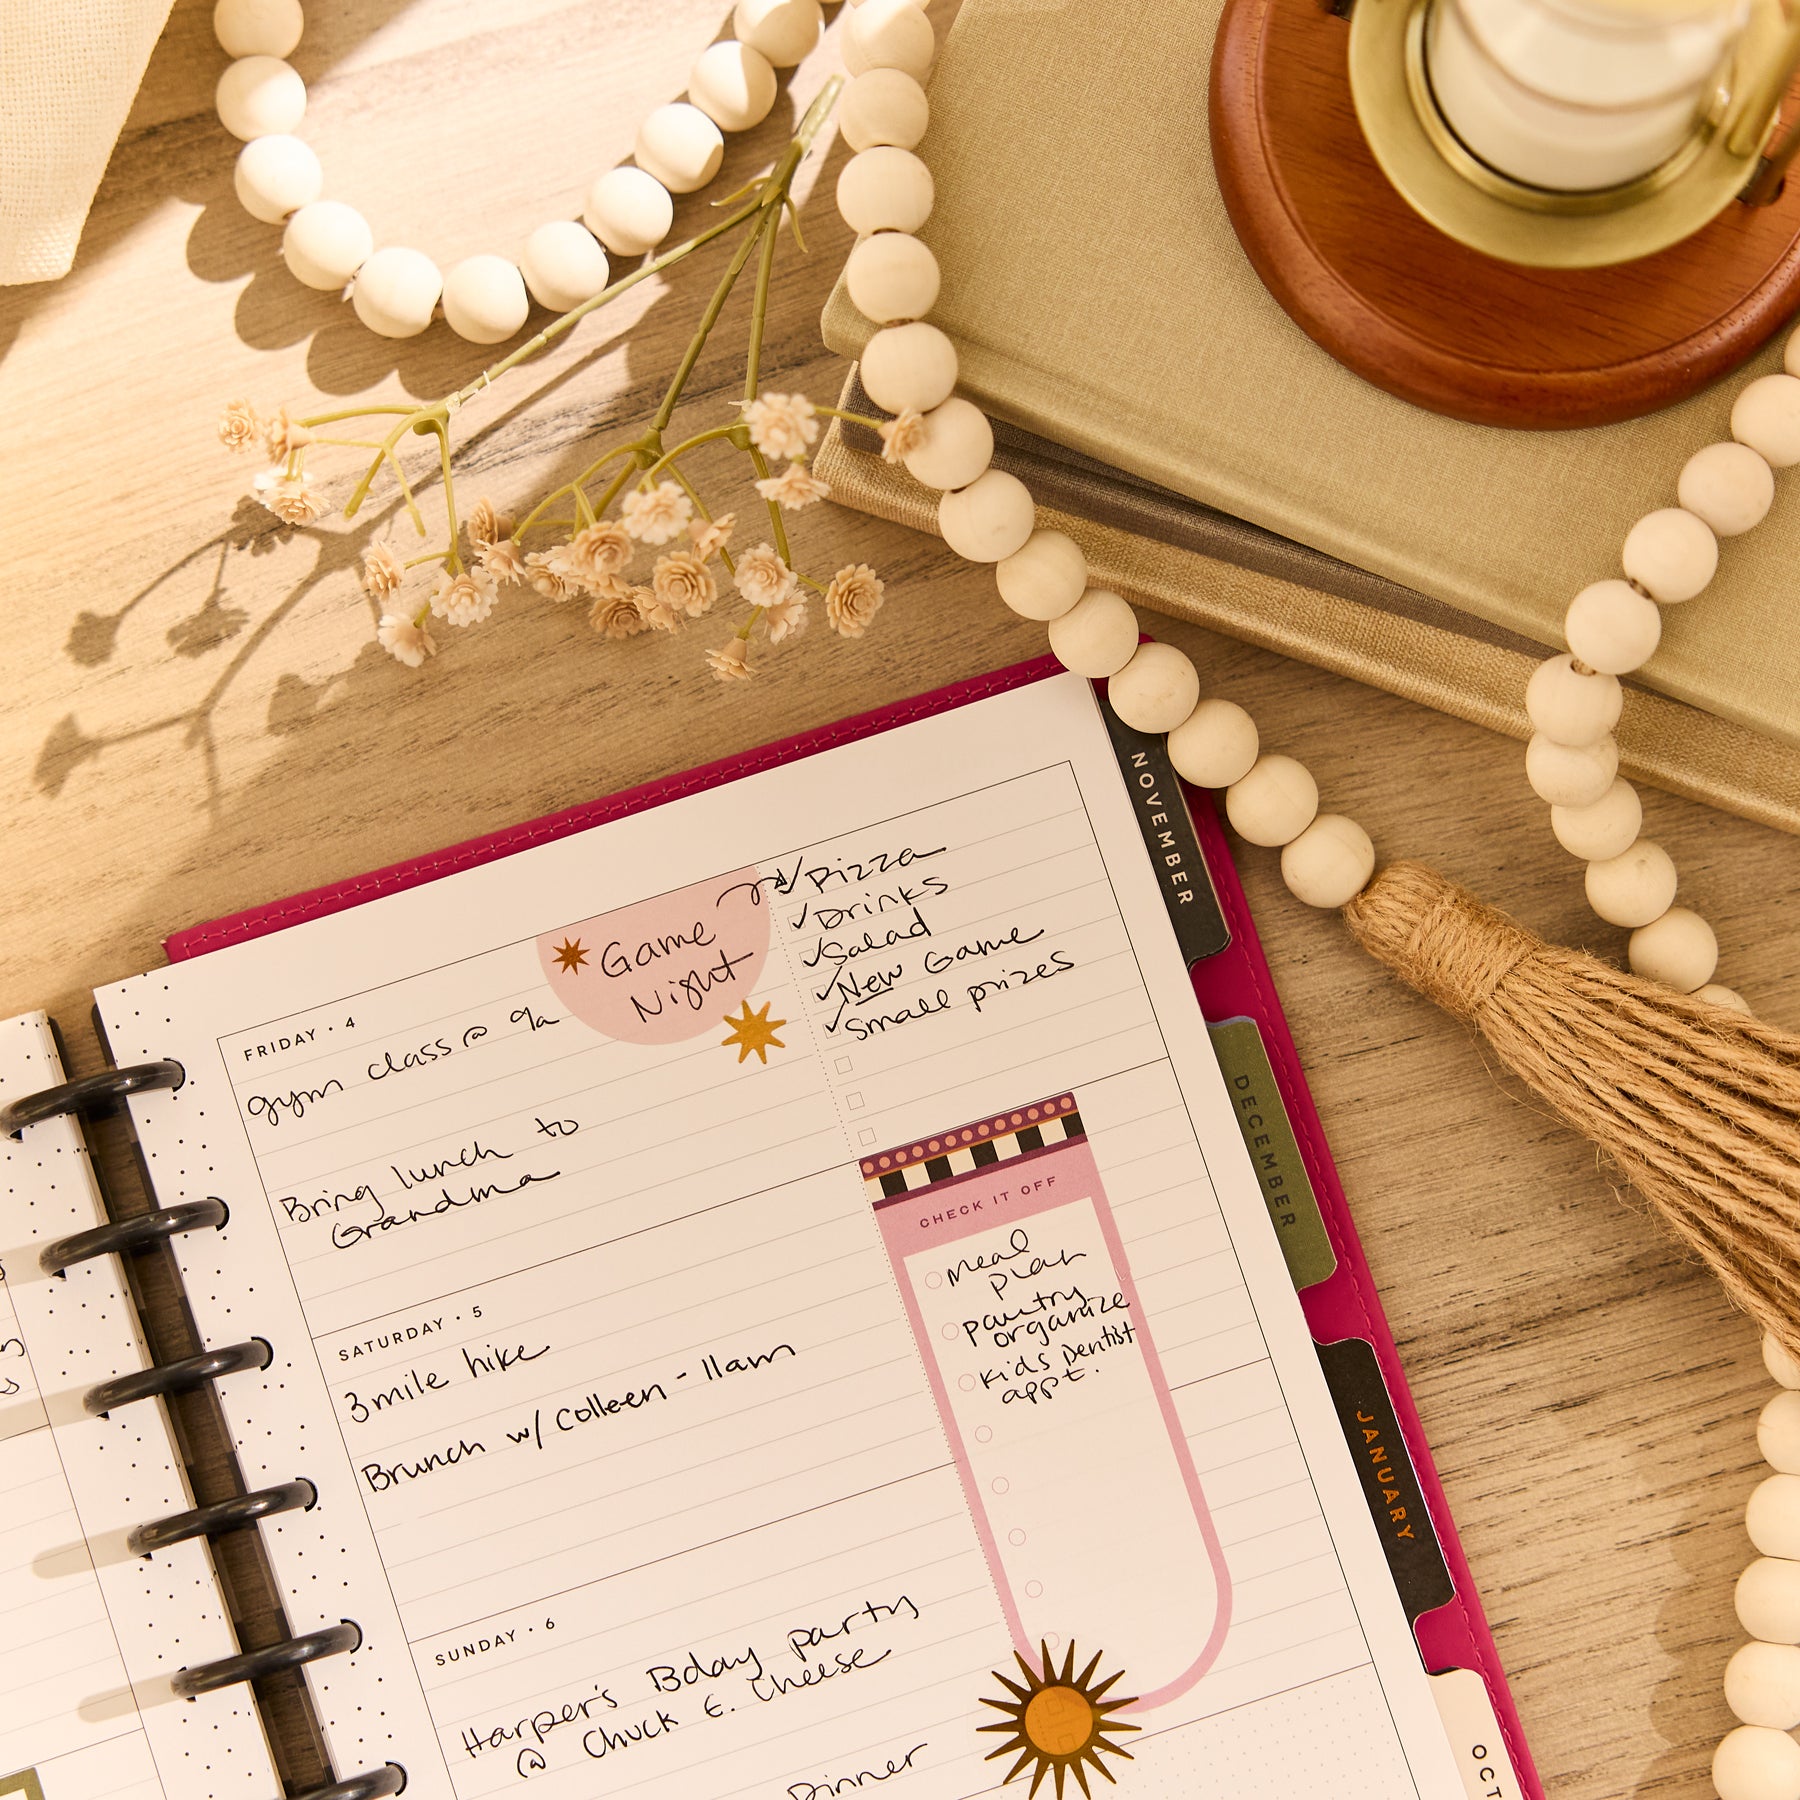 FRIDAY • 4
gym class @ 9a
Bring lunch to
Grandma
Game
Night
✓ Pizza
✓ Drinks
✓ Salad
✓ New Game
✓ Small prizes
SATURDAY • 5
3 mile hike
Brunch w/ Colleen - 11am
CHECK IT OFF
meal
plan
pantry
organize
kids Dentist
appt.
SUNDAY • 6
Harper's Bday party
@ Chuck E. Cheese
Dinner
NOVEMBER
DECEMBER
JANUARY
OCT